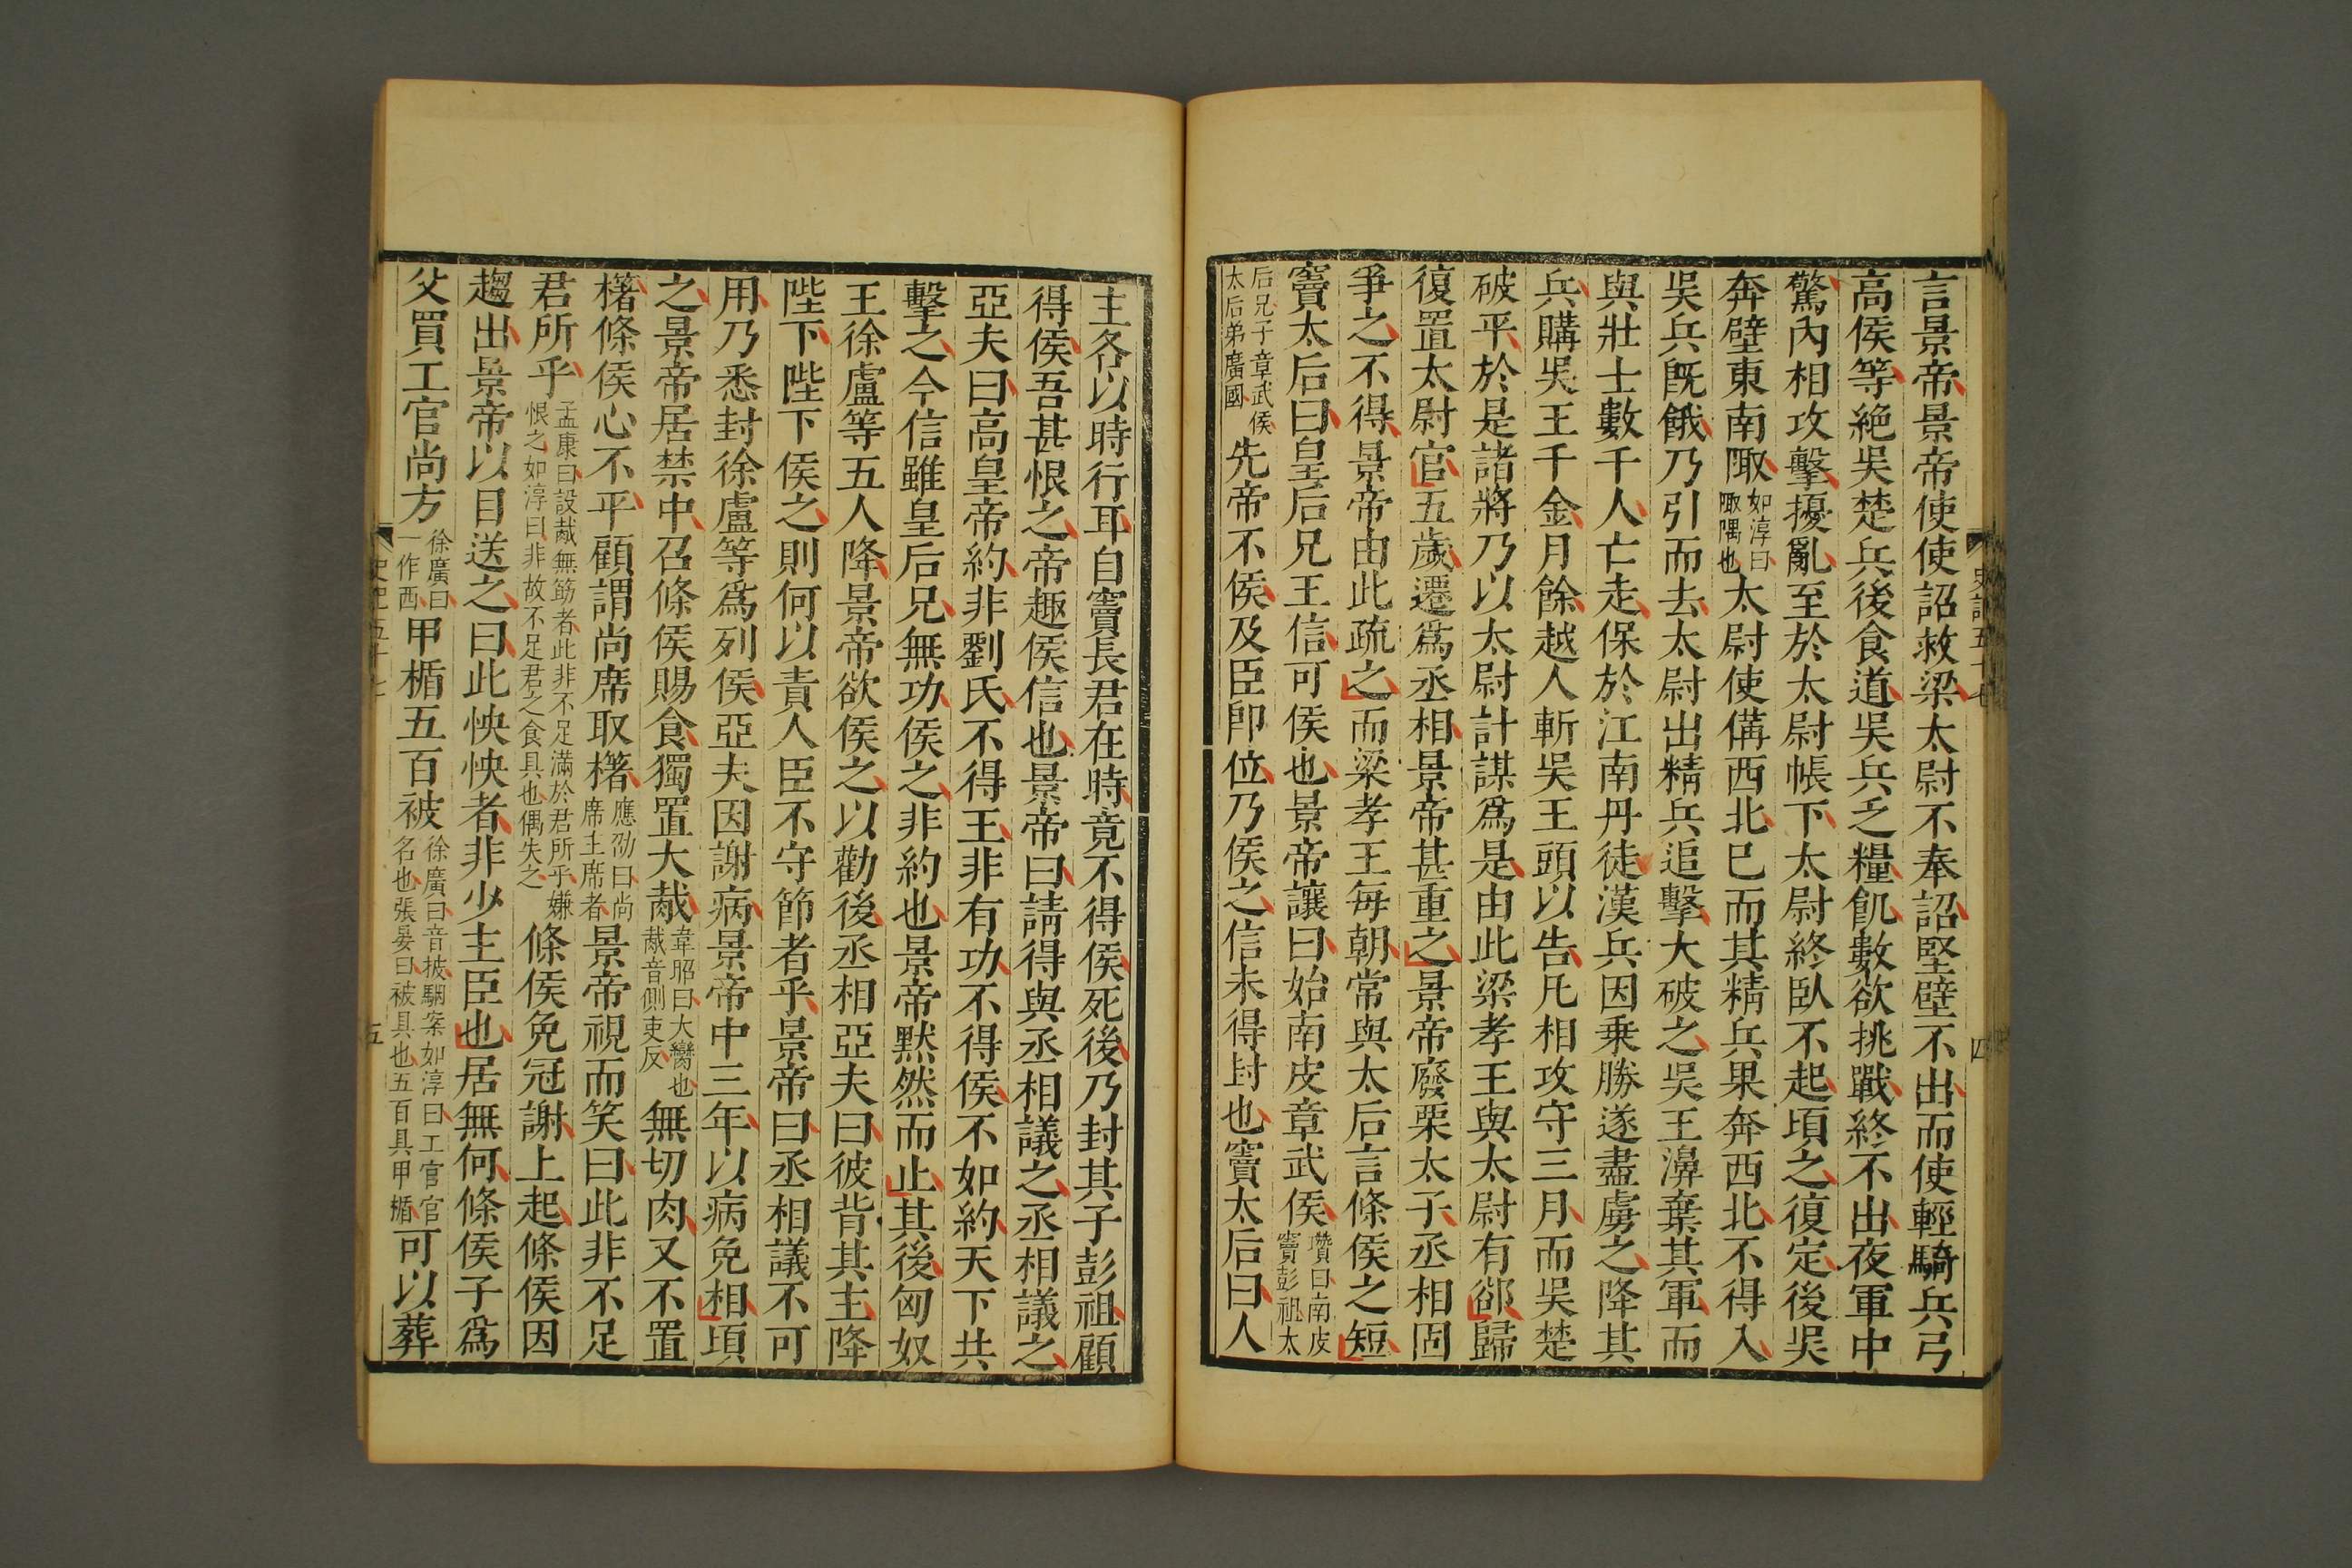 言景帝景帝使使詔救梁太尉不奉詔堅壁不出而使輕騎兵弓
高侯等絶吳楚兵後食道吳兵乏糧飢數欲挑戰終不出夜軍中
驚內相攻擊擾亂至於太尉帳下太尉終臥不起頃之復定後吳
奔壁東南陬如淳曰陬隅也太尉使備西北已而其精兵果奔西北不得入
吳兵旣餓乃引而去太尉出精兵追擊大破之吳王濞棄其軍而
與壯士數千人亡走保於江南丹徒漢兵因乗勝遂盡虜之降其
兵購吳王千金月餘越人斬吳王頭以告凡相攻守三月而吳楚
破平於是諸將乃以太尉計謀爲是由此梁孝王與太尉有郤歸
復置太尉官五歲遷爲丞相景帝甚重之景帝廢栗太子丞相固
爭之不得景帝由此疏之而梁孝王每朝常與太后言條侯之短
竇太后曰皇后兄王信可侯也景帝讓曰始南皮章武侯瓚曰南皮竇彭祖太
后兄子章武侯太后弟廣國先帝不侯及臣卽位乃侯之信未得封也竇太后曰人
史記五十七
四
主各以時行耳自竇長君在時竟不得侯死後乃封其子彭祖顧
得侯吾甚恨之帝趣侯信也景帝曰請得與丞相議之丞相議之
亞夫曰高皇帝約非劉氏不得王非有功不得侯不如約天下共
擊之今信雖皇后兄無功侯之非約也景帝默然而止其後匈奴
王徐盧等五人降景帝欲侯之以勸後丞相亞夫曰彼背其主降
陛下陛下侯之則何以責人臣不守節者乎景帝曰丞相議不可
用乃悉封徐盧等爲列侯亞夫因謝病景帝中三年以病免相頃
之景帝居禁中召條侯賜食獨置大胾韋昭曰大臠也胾音側吏反無切肉又不置
櫡條侯心不平顧謂尚席取櫡應劭曰尚席主席者景帝視而笑曰此非不足
君所乎孟康曰設胾無筯者此非不足滿於君所乎嫌恨之如淳曰非故不足君之食具也偶失之條侯免冠謝上起條侯因
趨出景帝以目送之曰此怏怏者非少主臣也居無何條侯子爲
父買工官尚方徐廣曰一作西甲楯五百被徐廣曰音披駰案如淳曰工官官名也張晏曰被具也五百具甲楯可以葬
史記五十七
五